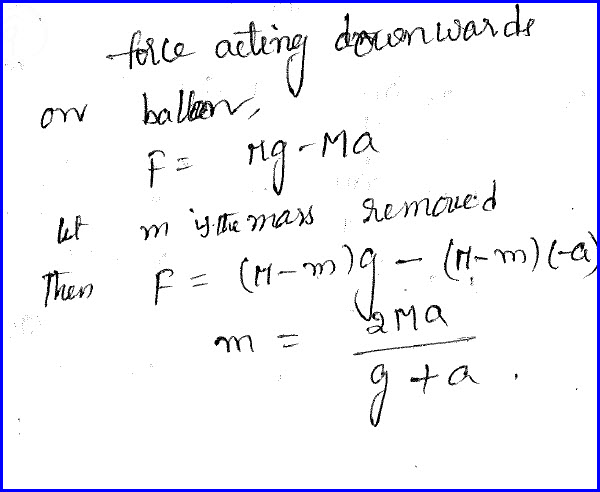 force acting downwards
on balloon,
F = Mg - Ma
let m is the mass removed
Then F = (M-m)g - (M-m)(-a)
m = 2Ma
g + a .